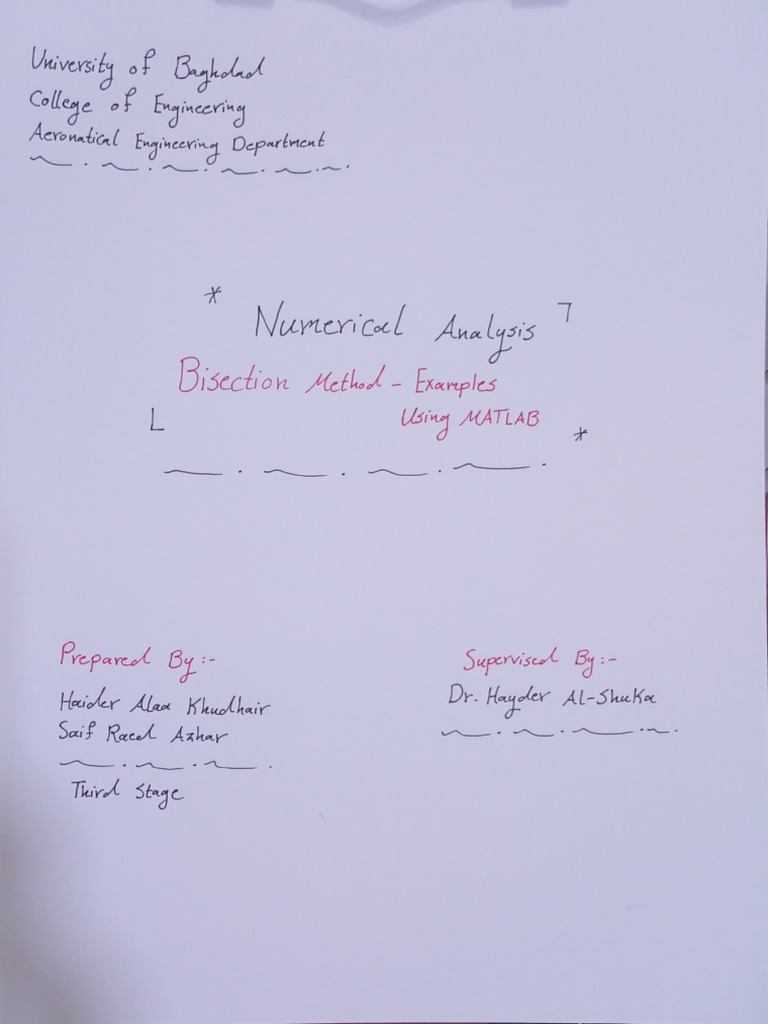 University of Baghdad
College of Engineering
Aeronatical Engineering Department
* Numerical Analysis
Bisection Method - Examples
Using MATLAB *
Prepared By:-
Haider Alaa Khudhair
Saif Raed Azhar
Third Stage
Supervised By:-
Dr. Hayder Al-Shuka